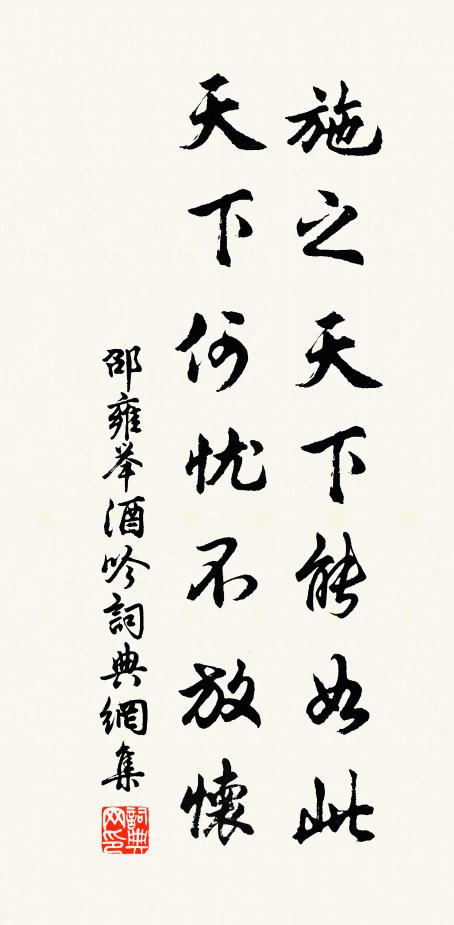 施之天下能如此
天下何忧不放懷
邵雍举酒吟詞典網集
詞典网印